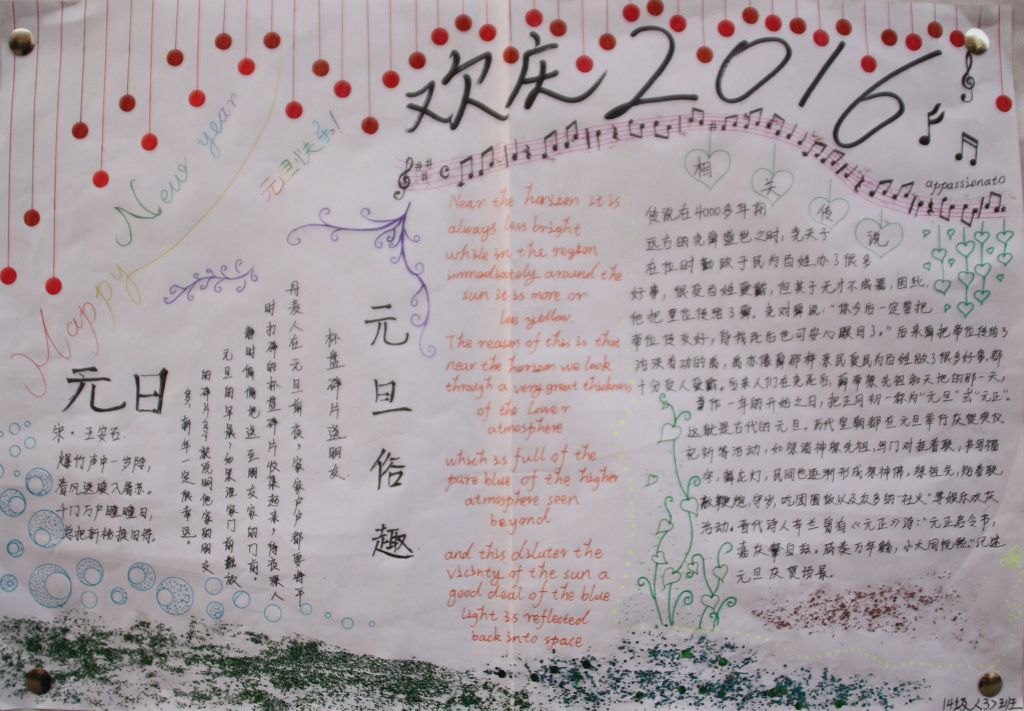 欢庆2016
Happy New year
元旦快乐!
appassionato
元日
宋·王安石
爆竹声中一岁除,
春风送暖入屠苏。
千门万户曈曈日,
总把新桃换旧符。
元旦俗趣
杯盘碎片送朋友
丹麦人在元旦前夜,家家户户都要将平
时打碎的杯盘碎片收集起来,待夜深人
静时偷偷地送至朋友家的门前。
元旦的早晨,如果谁家门前堆放
的碎片
多,新年一定很幸运。
Near the horizon it is
always less bright
while in the region
immediately around the
sun it is more or
les yellow.
The reason of this is that
near the horizon we look
through a very great thickness
of the lower
atmosphere
which is full of the
pure blue of the higher
atmosphere seen
beyond
and this diluter the
vicinty of the sun a
good deal of the blue
light is reflected
back into space
相关传说
传说在4000多年前
远古的尧舜盛世之时,尧天子
在位时勤政于民为百姓办了很多
好事,很受百姓爱戴,但其子无才不成器,因此,
他把皇位传给了舜。尧对舜说:"你今后一定要把
帝位传交好,待我死后也可安心瞑目了。"后来舜把帝位传给了
治洪有功的禹,禹亦像舜那样亲民爱民为百姓做了很多好事,都
十分受人爱戴。后来人们在尧死后,舜带祭先祖和天地的那一天,
当作一年的开始之日,把正月初一称为"元旦"或"元正"。
这就是古代的元旦。历代皇朝都在元旦举行庆贺典仪
祈祀等活动,如祭诸神祭先祖,写门对挂春联,书写福
字,舞龙灯,民间也逐渐形成祭神佛,祭祖先,贴春联,
放鞭炮,守岁,吃团圆饭以及众多的"社火"等娱乐欢庆
活动。晋代诗人辛兰曾有《元正》诗:"元正启令节,
嘉庆肇自兹。咸奏万年觞,小大同悦熙。"记述
元旦庆贺场景。
14级<3>班